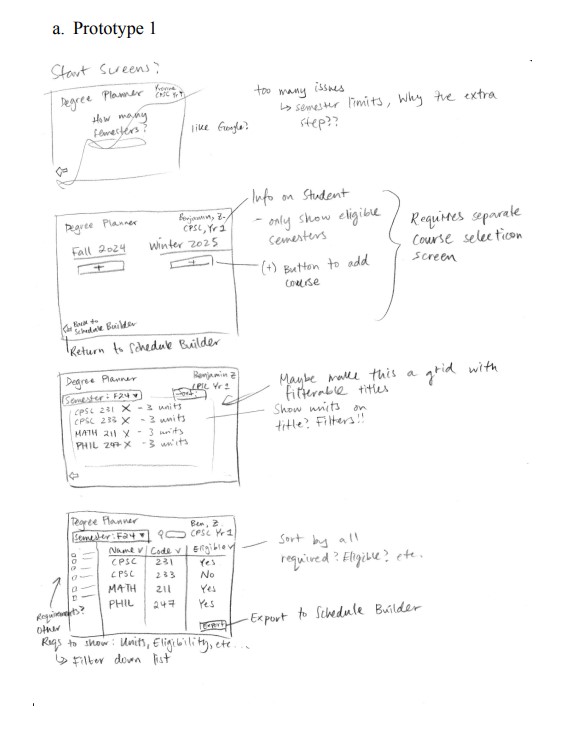 a. Prototype 1
Start Screens?
Degree Planner
CPSC Yr 1
How many
semesters?
like Google?
too many issues
↳ semester limits, Why the extra
step??
Degree Planner
Benjamin, Z.
CPSC, Yr 1
Fall 2024
Winter 2025
+
+
Back to
Schedule Builder
Return to Schedule Builder
Info on Student
- only show eligible
semesters
(+) Button to add
course
Requires separate
course selection
screen
Degree Planner
Benjamin Z
CPSC Yr 1
Semester: F24 ▼
CPSC 231 X - 3 units
CPSC 233 X - 3 units
MATH 211 X - 3 units
PHIL 247 X - 3 units
Maybe make this a grid with
filterable titles
Show units on
title? Filters!!
Degree Planner
Ben, Z
CPSC Yr 1
Semester: F24 ▼
Name v Code v Eligible v
CPSC 231 Yes
CPSC 233 No
MATH 211 Yes
PHIL 247 Yes
Export
Sort by all
required? Eligible? etc.
Export to Schedule Builder
Requirements?
Other
Reqs to show: Units, Eligibility, etc...
↳ Filter down list